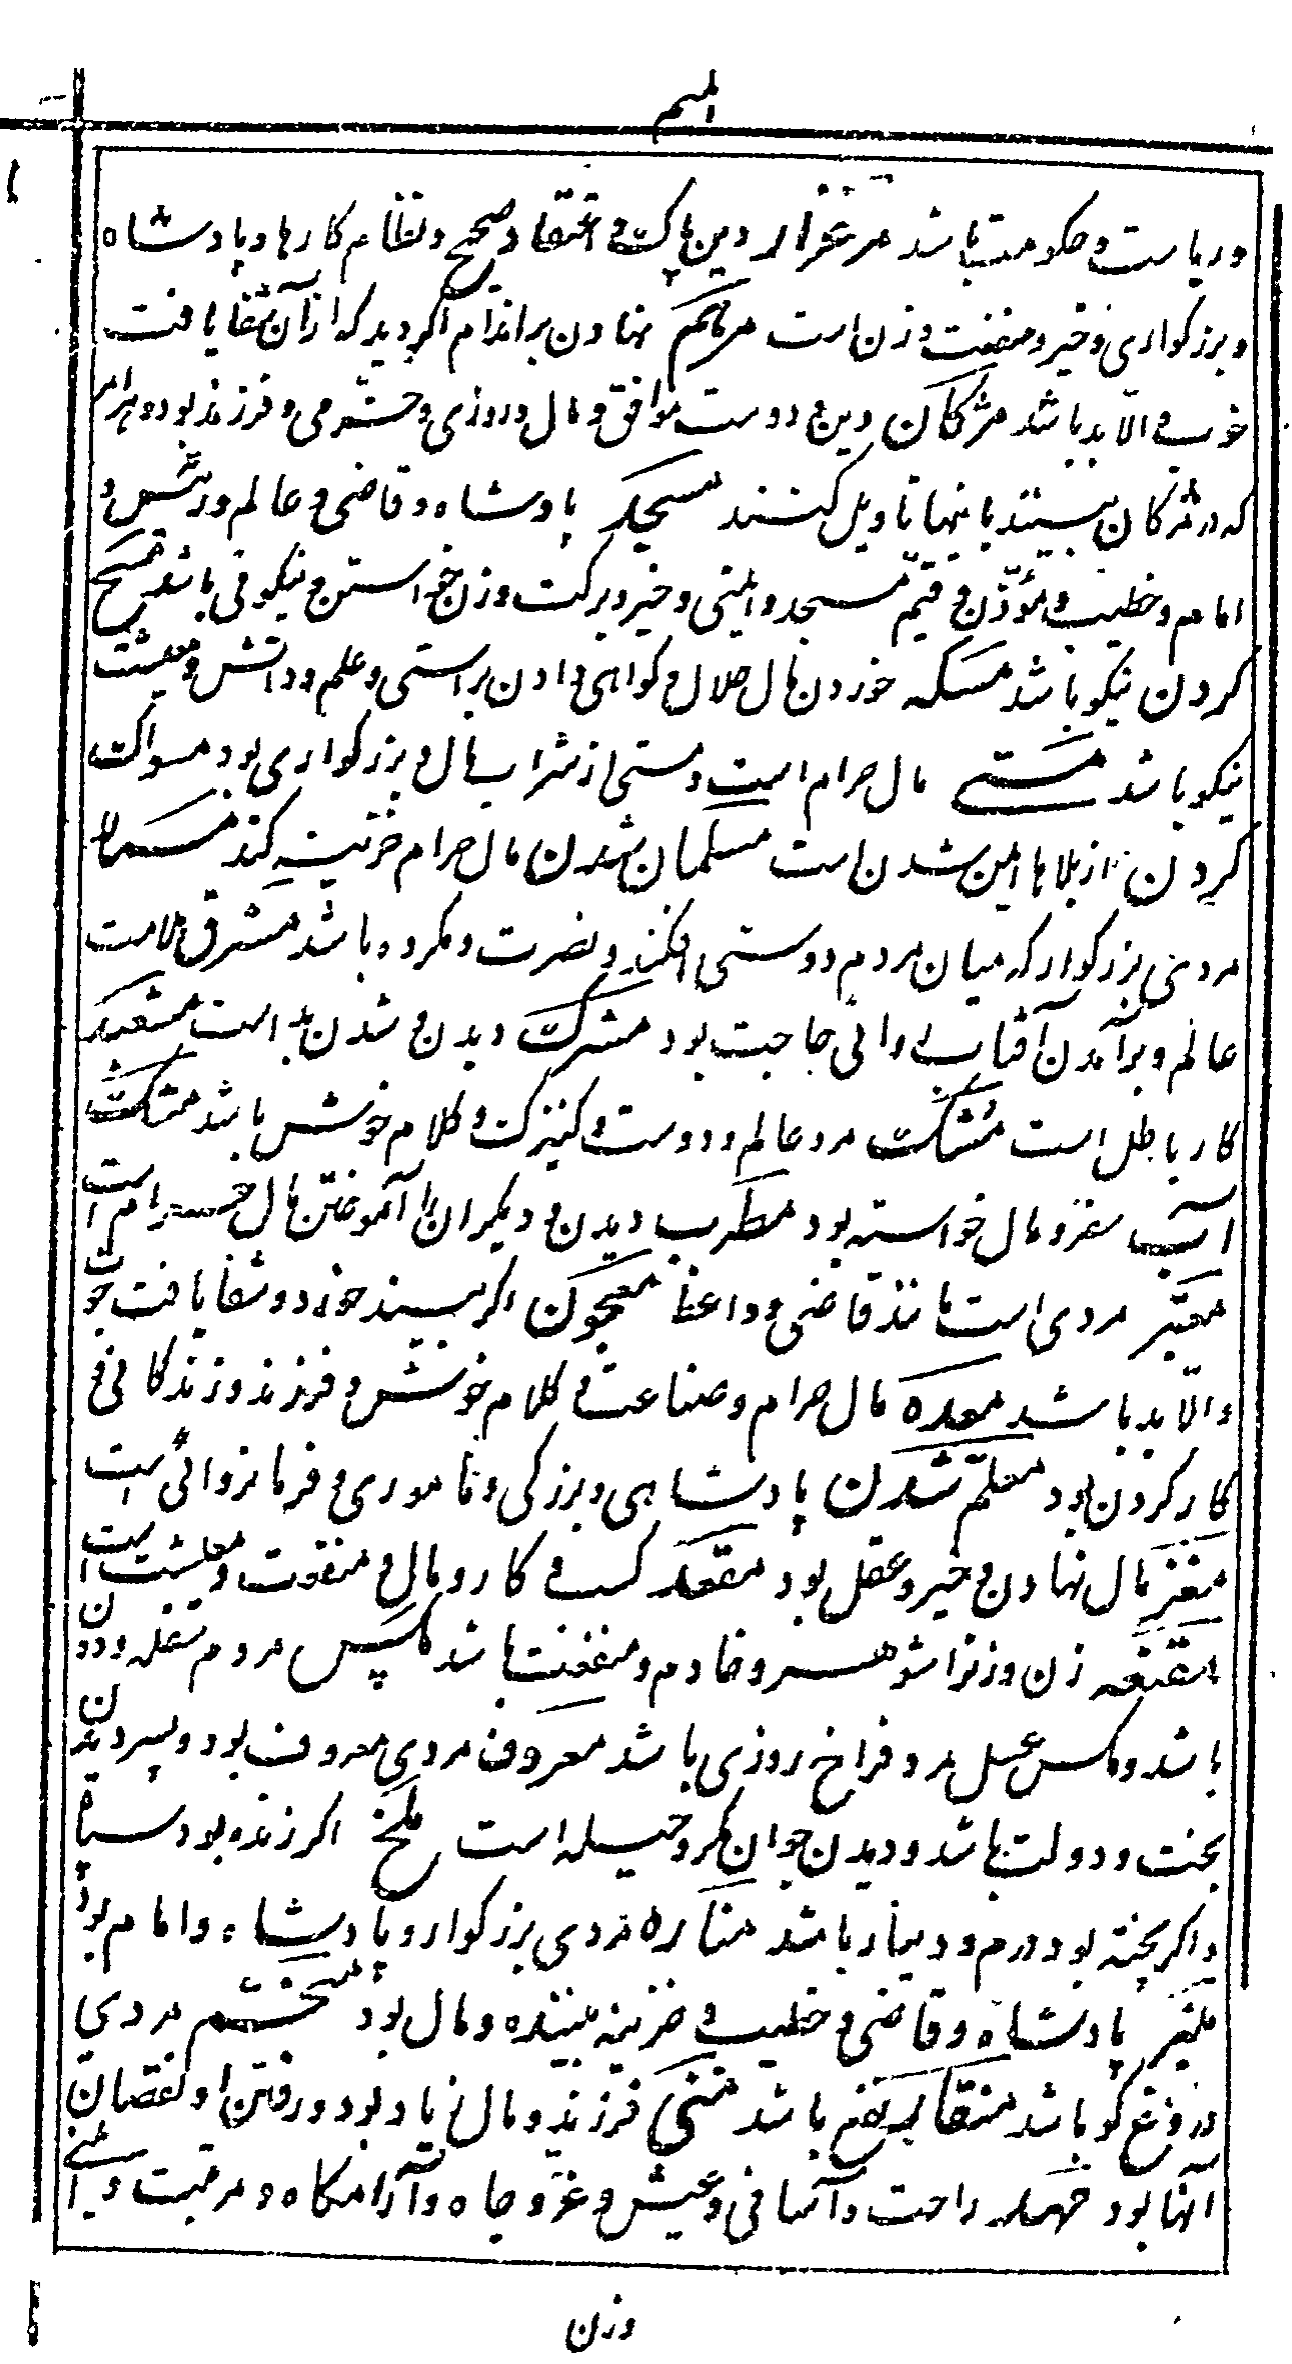 المیم
وریاست و حکومت باشد مرغزار دین پاک و اعتقاد صحیح و نظام کارها و پادشاه
و بزرکواری و خیر و منفعت و زن است مرهم نهادن بر اندام اکر دید که از آن شفا یافت
خوب و الّا بد باشد مژکان دین و دوست موافق و مال و روزی و خشرمی و فرزند بود و هرامر
که در مژکان بینند باینها تاویل کنند مسجد پادشاه و قاضی و عالم و رئیس و
امام و خطیب و مؤذّن و قیّم مسجد و ایمنی و خیر و برکت و زن خواستن و نیکوئی باشد مسح
کردن نیکو باشد مسکه خوردن مال حلال و کواهی دادن براستی و علم و دانش و معیشت
نیکو باشد مستی مال حرام است و مستی از شراب مال و بزرکواری بود مسواک
کردن از بلاها ایمن شدن است مسلمان شدن مال حرام خزینه کند
مردی بزرکوار که میان مردم دوستی افکند و نصرت و مکرده باشد مشرق علامت
عالم و برآمدن آفتاب و انی حاجبت بود مشرک دیدن و شدن بد است مشعبد
کار باطل است مُشک مرد عالم و دوست و کنیزک و کلام خوش باشد مشک
آب سفر و مال خواسته بود مطرب دیدن و دیکران را آموختن مال حرام است
معبّر مردی است مانند قاضی و واعظ معجون اکر بیند خورد و شفا یافت خوب
و الّا بد باشد معده مال حرام و صناعت و کلام خوش و فرزند و زندکانی و
کار کردن بود معلّم شدن پادشاهی و بزرکی و ناموری و فرمانروائی است
مغز مال نهادن و خیر و عقل بود مقعد کسب و کار و مال و منفعت و معیشت است
مقنعه زن و زنرا شوهر و خادم و منفعت باشد مکس مردم سفله و دون
باشد و مکس عسل مرد فراخ روزی باشد معروف مردی معروف بود و پیر دیدن
بخت و دولت باشد و دیدن جوان مکر و حیله است ملخ اکر زنده بود سپاه
و اکر پخته بود درم و دینار باشد مناره مردی بزرکوار و پادشاه و امام بود
منبر پادشاه و قاضی و خطیب و خزینه بیننده و مال بود منجّم مردی
دروغ کو باشد منقار نفع باشد منی فرزند و مال زیاد بود و رفتن او نقصان
آنها بود مهمله راحت و آسانی و عیش و عزّ و جاه و آرامکاه و مرتبت و ایمنی
وزن